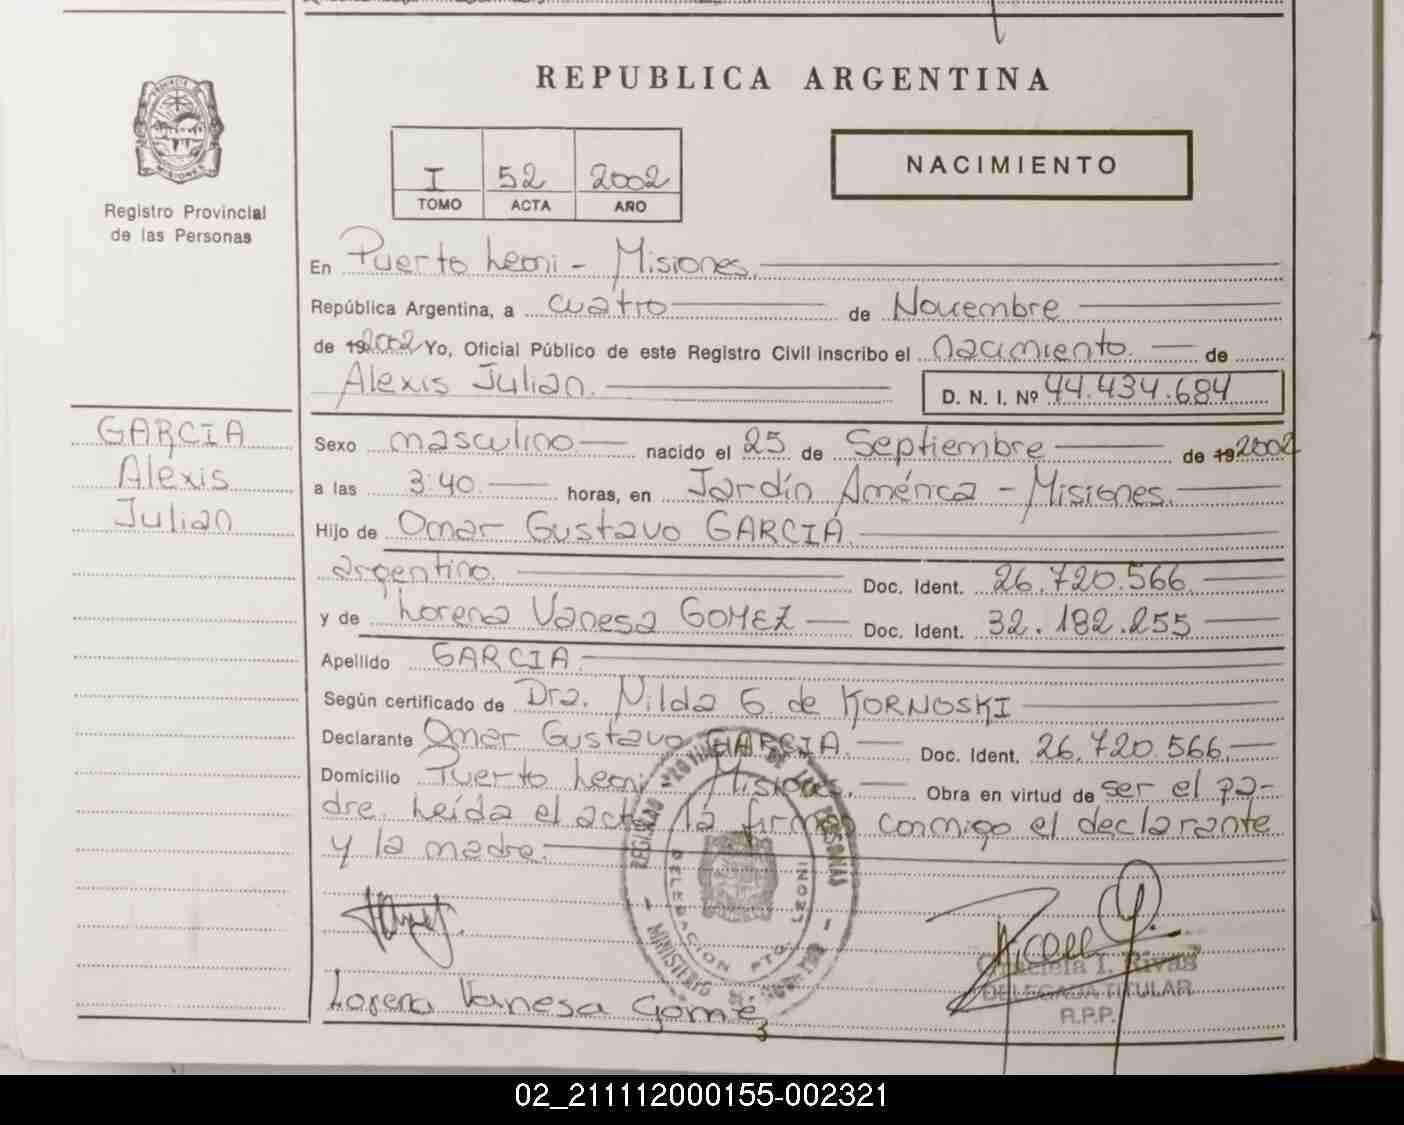 REPUBLICA ARGENTINA
PROVINCIA DE
MISIONES
Registro Provincial
de las Personas
I 52 2002
TOMO ACTA AÑO
NACIMIENTO
En Puerto Leoni - Misiones.
República Argentina, a cuatro de Noviembre
de 192002 Yo, Oficial Público de este Registro Civil inscribo el nacimiento. de
Alexis Julian. D. N. I. Nº 44.434.684
GARCIA
Alexis
Julian
Sexo masculino nacido el 25 de Septiembre de 192002
a las 3:40. horas, en Jardín América - Misiones.
Hijo de Omar Gustavo GARCIA.
argentino. Doc. Ident. 26.720.566.
y de Lorena Vanesa GOMEZ Doc. Ident. 32.182.255
Apellido GARCIA.
Según certificado de Dra. Nilda G. de KORNOSKI
Declarante Omar Gustavo GARCIA. Doc. Ident. 26.720.566.
Domicilio Puerto Leoni Misiones. Obra en virtud de ser el pa-
dre. Leída el acta la firman conmigo el declarante
y la madre.
REGISTRO PROVINCIAL DE LAS PERSONAS
DELEGACION PTO. LEONI
- MINISTERIO DE GOBIERNO -
Graciela I. Rivas
DELEGADA TITULAR
R.P.P.
Lorena Vanesa Gomez
02_211112000155-002321